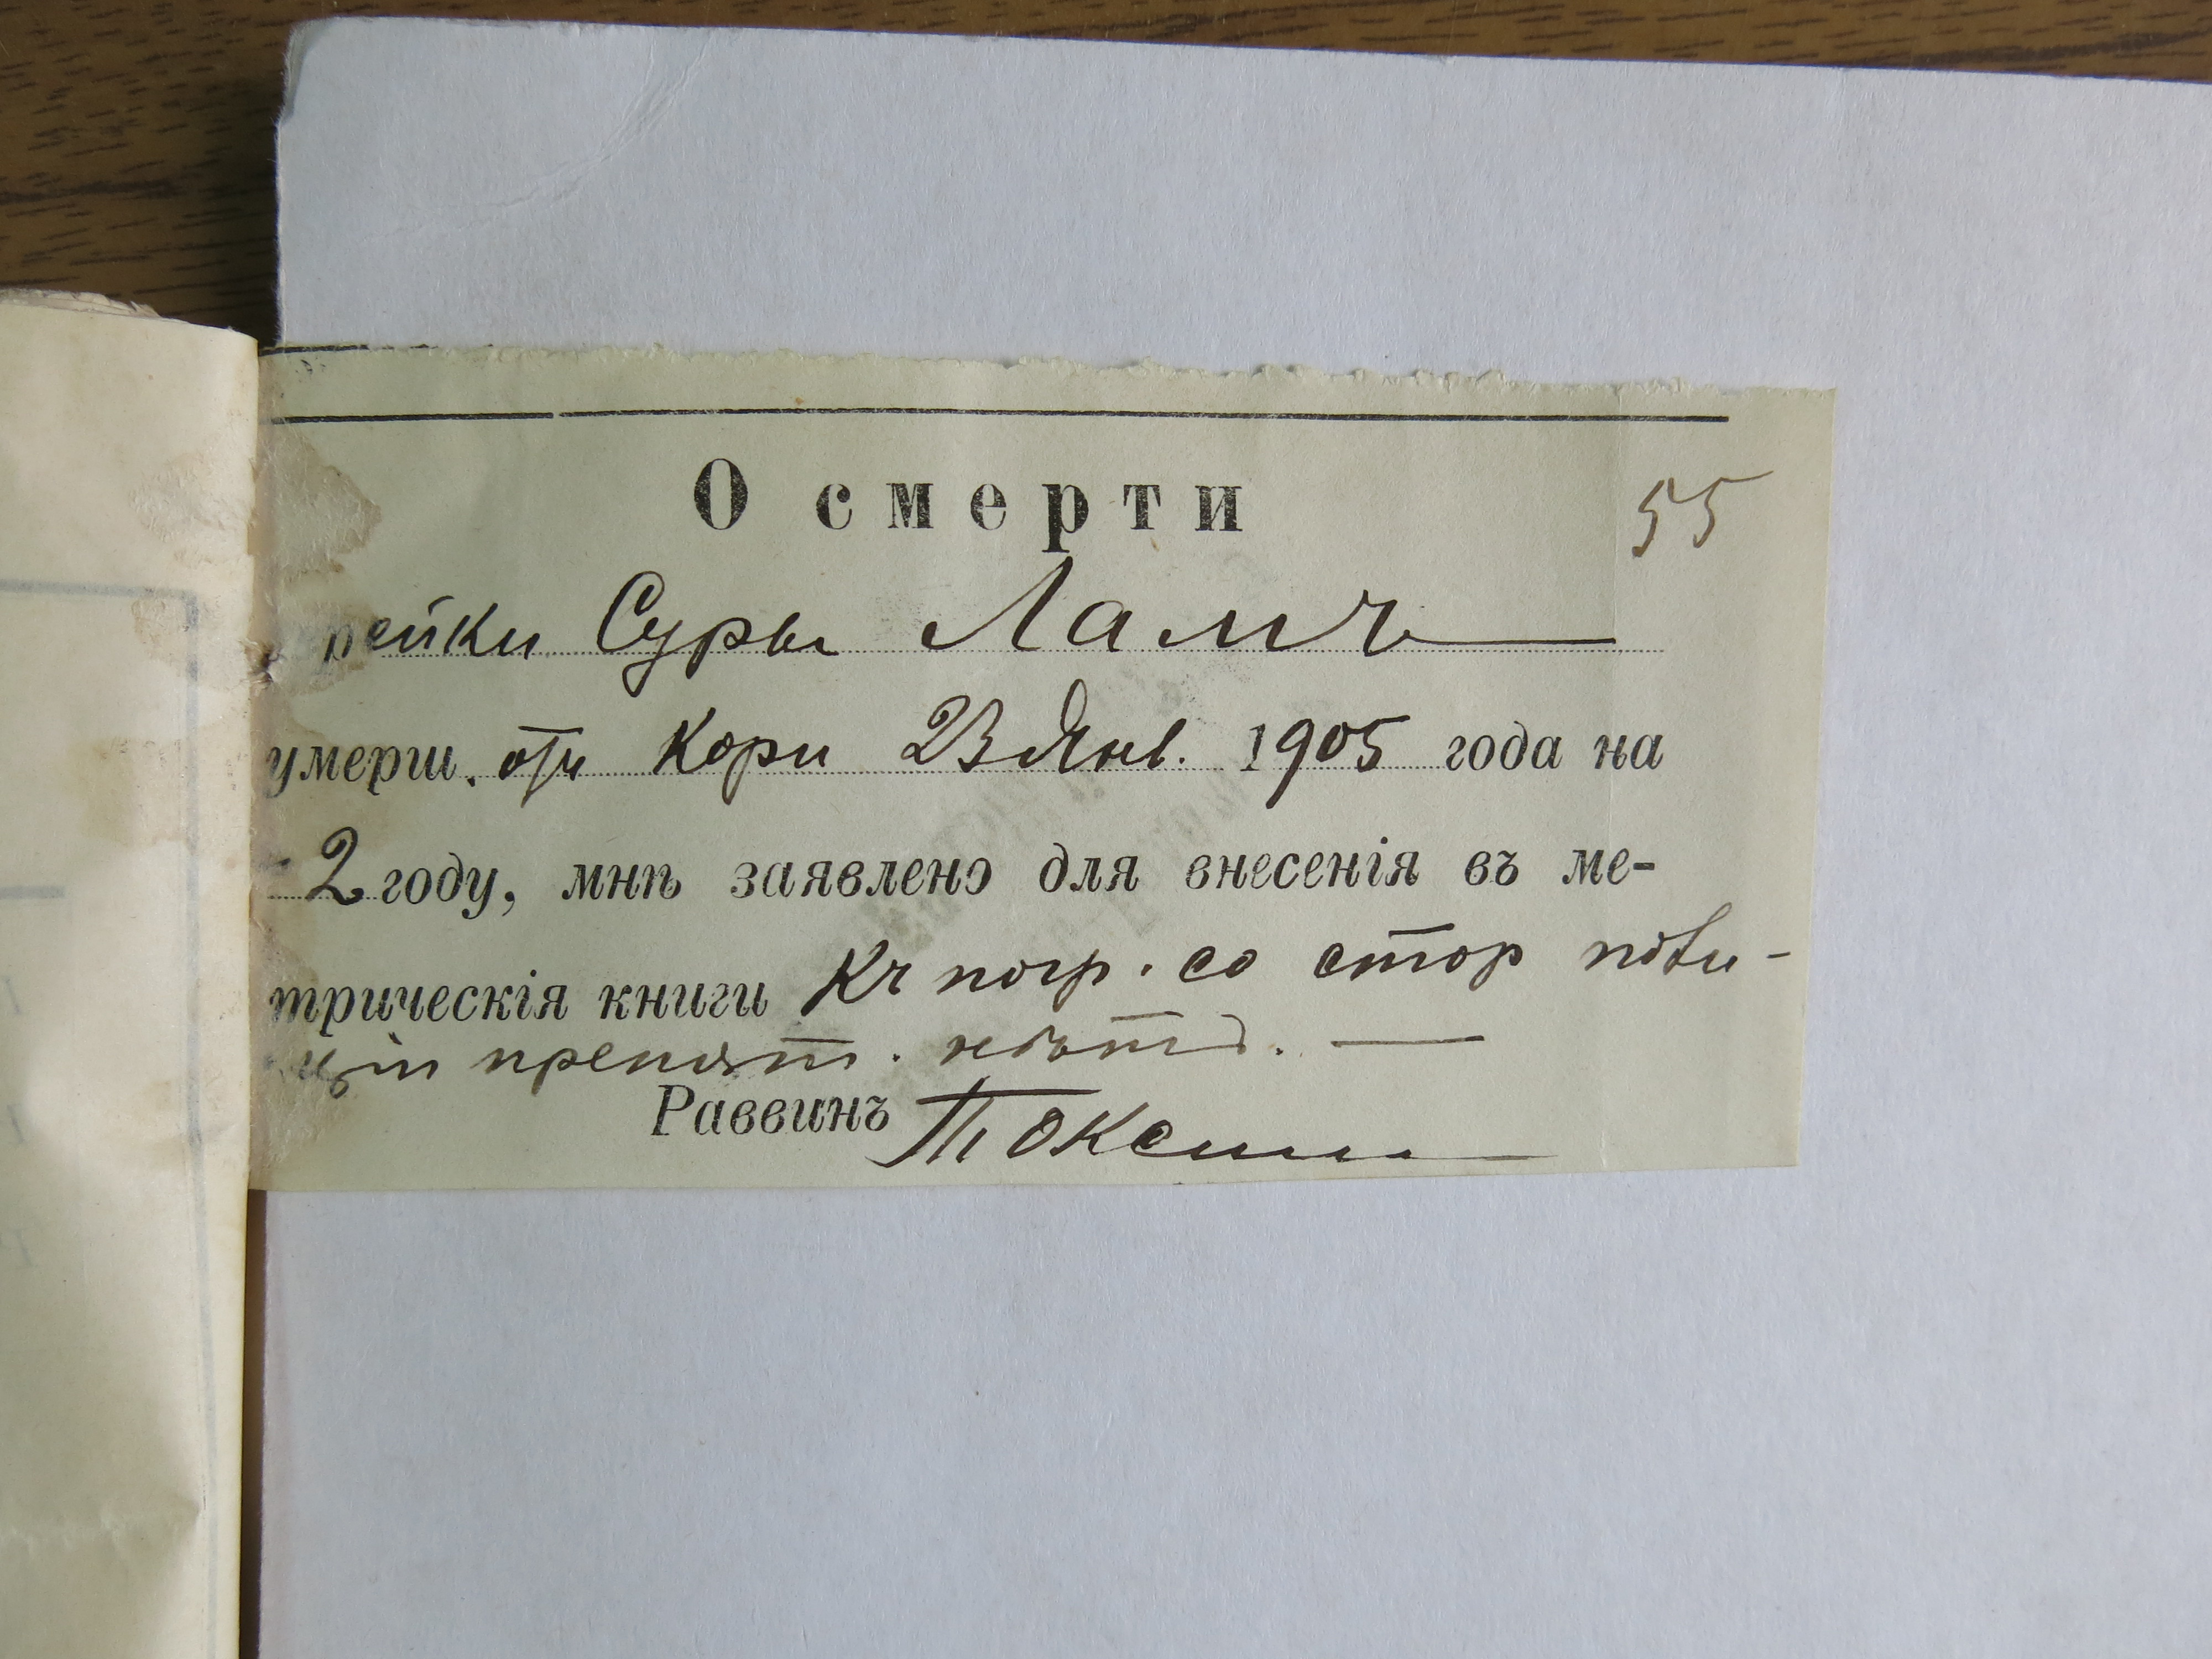 О смерти
55
рейки Суры Ламъ
умерш. отъ Кори 23 Янв. 1905 года на
2 году, мнѣ заявлено для внесенія въ ме-
трическія книги Къ погр. со стор поли-
ціи препят. нѣтъ.
Раввинъ